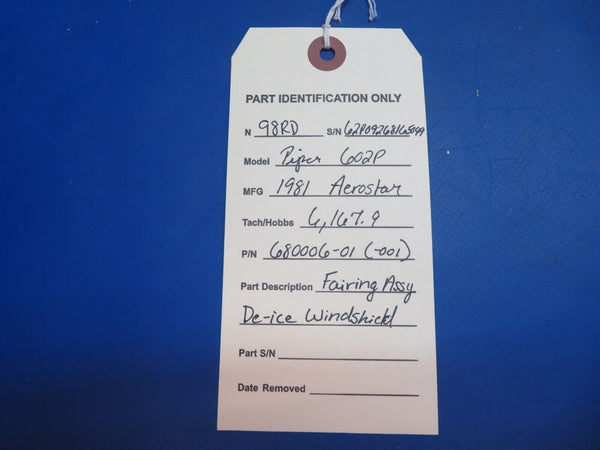 PART IDENTIFICATION ONLY
N 98RD S/N 62P09268165049
Model Piper 602P
MFG 1981 Aerostar
Tach/Hobbs 6,167.9
P/N 680006-01 (-001)
Part Description Fairing Assy
De-ice Windshield
Part S/N
Date Removed